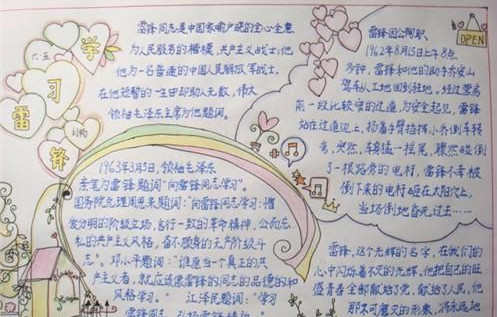 学
习
雷
锋
雷锋同志是中国家喻户晓的全心全意
为人民服务的楷模，共产主义战士；他
作为一名普通的中国人民解放军战士，
在他短暂的一生中助人无数，伟大
领袖毛泽东主席为他题词。
1963年3月5日，领袖毛泽东
亲笔为雷锋题词："向雷锋同志学习"。
国务院总理周恩来题词："向雷锋同志学习：憎
爱分明的阶级立场，言行一致的革命精神，公而忘
私的共产主义风格，奋不顾身的无产阶级斗
志"。邓小平题词："谁愿当一个真正的共
产主义者，就应该向雷锋同志的品德和
风格学习。" 江泽民题词："学习
雷锋同志
OPEN
雷锋因公殉职
1962年8月15日上午8点
多钟，雷锋和他的助手乔安山
驾车从工地回到驻地，经过营房
前一段比较窄的过道，为安全起见，雷锋
站在过道边上，扬着手臂指挥小乔倒车转
弯，突然，车轮猛一摇尾，骤然碰倒
了一根路旁的电杆，雷锋不幸被
倒下来的电杆砸在太阳穴上，
当场倒地昏死过去……
雷锋，这个光辉的名字，在我们的
心中闪烁着不灭的光辉，他把自己的旺
盛青春全部献给了党，献给了人民，他
那不可磨灭的形象，将永远地